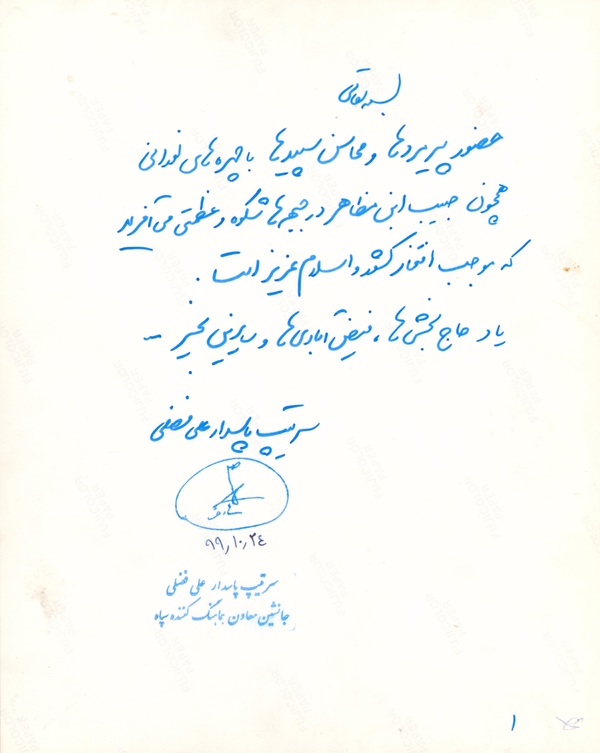 بسمه تعالی
حضور پیرمردها و محاسن سپیدها با چهره های نورانی
همچون حبیب ابن مظاهر در جبهه ها شکوه و عظمتی می آفریند
که موجب افتخار کشور و اسلام عزیز است .
یاد حاج بخشی ها ، فیض آبادی ها و سایرین بخیر --
سرتیپ پاسدار علی فضلی
۹۹٫۱۰٫۲۴
سرتیپ پاسدار علی فضلی
جانشین معاون هماهنگ کننده سپاه
۱